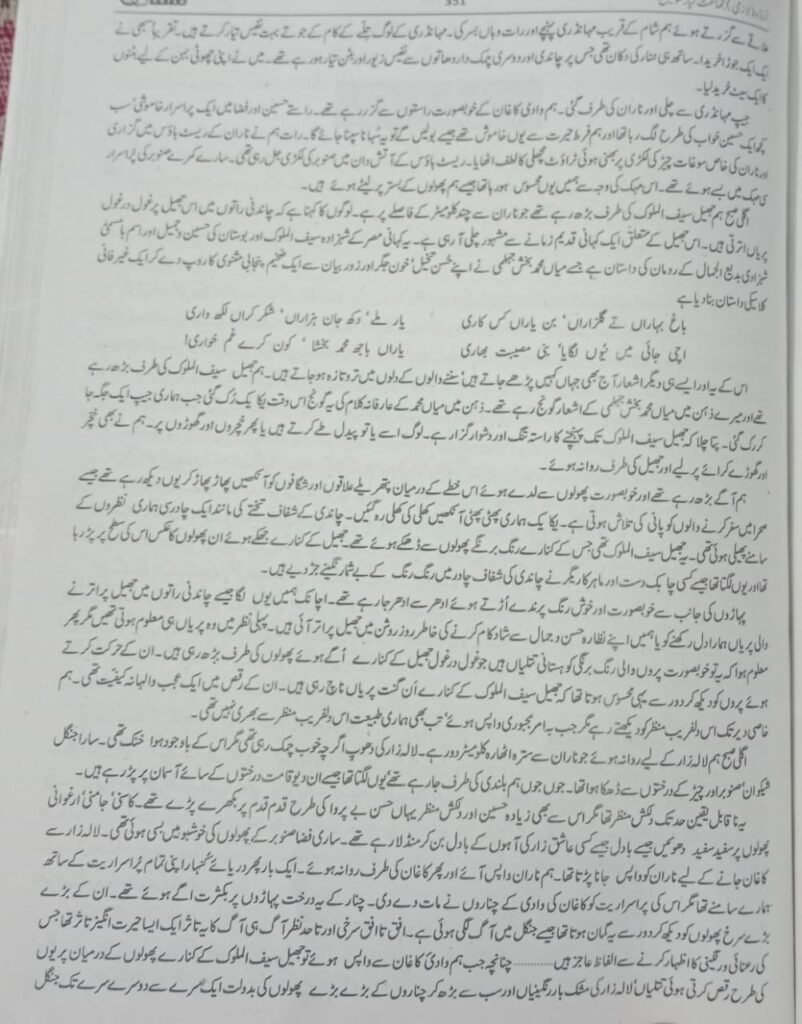 351
علاقے سے گزرتے ہوئے ہم شام کے قریب مہانڈری پہنچے اور رات وہاں بسر کی۔ مہانڈری کے لوگ جتنے کے کام کے جوتے بہت نفیس تیار کرتے ہیں۔ تقریباً سبھی نے
ایک ایک جوڑا خریدا۔ ساتھ ہی سنار کی دکان تھی جس پر چاندی اور دوسری چمک دار دھاتوں سے نفیس زیور اور بٹن تیار ہو رہے تھے۔ میں نے اپنی چھوٹی بہن کے لیے بٹنوں
کا ایک سیٹ خرید لیا۔
جیپ مہانڈری سے چلی اور ناران کی طرف گئی۔ ہم وادی کاغان کے خوبصورت راستوں سے گزر رہے تھے۔ راستے حسین اور فضا میں ایک پراسرار خاموشی‘ سب
کچھ ایک حسین خواب کی طرح لگ رہا تھا اور ہم فرطِ حیرت سے یوں خاموش تھے جیسے بولیں گے تو یہ سُہانا سپنا جائے گا۔ رات ہم نے ناران کے ریسٹ ہاؤس میں گزاری
اور ناران کی خاص سوغات چیڑ کی لکڑی پر بھنی ہوئی ٹراؤٹ مچھلی کا لطف اٹھایا۔ ریسٹ ہاؤس کے آتش دان میں صنوبر کی لکڑی جل رہی تھی۔ سارے کمرے صنوبر کی پراسرار
سی مہک میں بسے ہوئے تھے۔ اس مہک کی وجہ سے ہمیں یوں محسوس ہو رہا تھا جیسے ہم پھولوں کے بستر پر لیٹے ہوئے ہیں۔
اگلی صبح ہم جھیل سیف الملوک کی طرف بڑھ رہے تھے جو ناران سے چند کلومیٹر کے فاصلے پر ہے۔ لوگوں کا کہنا ہے کہ چاندنی راتوں میں اس جھیل پر غول در غول
پریاں اترتی ہیں۔ اس جھیل کے متعلق ایک کہانی قدیم زمانے سے مشہور چلی آ رہی ہے۔ یہ کہانی مصر کے شہزادہ سیف الملوک اور بوستان کی حسین و جمیل اور اسم بامسمّٰی
شہزادی بدیع الجمال کے رومان کی داستان ہے جسے میاں محمد بخش جہلمی نے اپنے حُسن تخیل‘ خون جگر اور زور بیان سے ایک ضخیم پنجابی مثنوی کا روپ دے کر ایک غیر فانی
کلاسیکی داستان بنا دیا ہے
باغ بہاراں تے گلزاراں‘ بن یاراں کس کاری یار ملے‘ دکھ جان ہزاراں‘ شکر کراں لکھ واری
اچی جائی میں نیُوں لگایا‘ بنی مصیبت بھاری یاراں باجھ محمد بخشا‘ کون کرے غم خواری!
اس کے یہ اور ایسے ہی دیگر اشعار آج بھی جہاں کہیں پڑھے جاتے ہیں‘ سننے والوں کے دلوں میں تر و تازہ ہو جاتے ہیں۔ ہم جھیل سیف الملوک کی طرف بڑھ رہے
تھے اور میرے ذہن میں میاں محمد بخش جہلمی کے اشعار گونج رہے تھے۔ ذہن میں میاں محمد کے عارفانہ کلام کی یہ گونج اس وقت یکایک رُک گئی جب ہماری جیپ ایک جگہ جا
کر رک گئی۔ پتا چلا کہ جھیل سیف الملوک تک پہنچنے کا راستہ تنگ اور دشوار گزار ہے۔ لوگ اسے یا تو پیدل طے کرتے ہیں یا پھر خچروں اور گھوڑوں پر۔ ہم نے بھی خچر
اور گھوڑے کرائے پر لیے اور جھیل کی طرف روانہ ہوئے۔
ہم آگے بڑھ رہے تھے اور خوبصورت پھولوں سے لدے ہوئے اس خطے کے درمیان پتھریلے علاقوں اور شگافوں کو آنکھیں پھاڑ پھاڑ کر یوں دیکھ رہے تھے جیسے
صحرا میں سفر کرنے والوں کو پانی کی تلاش ہوتی ہے۔ یکایک ہماری پھٹی پھٹی آنکھیں کھلی کی کھلی رہ گئیں۔ چاندی کے شفاف تختے کی مانند ایک چادر سی ہماری نظروں کے
سامنے پھیلی ہوئی تھی۔ یہ جھیل سیف الملوک تھی جس کے کنارے رنگ برنگے پھولوں سے ڈھکے ہوئے تھے۔ جھیل کے کنارے جھکے ہوئے ان پھولوں کا عکس اس کی سطح پر پڑ رہا
تھا اور یوں لگتا تھا جیسے کسی چابک دست اور ماہر کاریگر نے چاندی کی شفاف چادر میں رنگ رنگ کے بے شمار نگینے جڑ دیے ہیں۔
پہاڑوں کی جانب سے خوبصورت اور خوش رنگ پرندے اُڑتے ہوئے ادھر سے ادھر جا رہے تھے۔ اچانک ہمیں یوں لگا جیسے چاندنی راتوں میں جھیل پر اترنے
والی پریاں ہمارا دل رکھنے کو یا ہمیں اپنے نظارہ حسن و جمال سے شاد کام کرنے کی خاطر روز روشن میں جھیل پر اتر آئی ہیں۔ پہلی نظر میں وہ پریاں ہی معلوم ہوتی تھیں مگر پھر
معلوم ہوا کہ یہ تو خوبصورت پروں والی رنگ برنگی کوہستانی تتلیاں ہیں جو غول در غول جھیل کے کنارے اُگے ہوئے پھولوں کی طرف بڑھ رہی ہیں۔ ان کے حرکت کرتے
ہوئے پروں کو دیکھ کر دور سے یہی محسوس ہوتا تھا کہ جھیل سیف الملوک کے کنارے اَن گنت پریاں ناچ رہی ہیں۔ ان کے رقص میں ایک عجب والہانہ کیفیت تھی۔ ہم
خاصی دیر تک اس دلفریب منظر کو دیکھتے رہے مگر جب بہ امر مجبوری واپس ہوئے‘ تب بھی ہماری طبیعت اس دلفریب منظر سے بھری نہیں تھی۔
اگلی صبح ہم لالہ زار کے لیے روانہ ہوئے جو ناران سے سترہ اٹھارہ کلومیٹر دور ہے۔ لالہ زار کی دھوپ اگرچہ خوب چمک رہی تھی مگر اس کے باوجود ہوا خنک تھی۔ سارا جنگل
شیکوان‘ صنوبر اور چیڑ کے درختوں سے ڈھکا ہوا تھا۔ جوں جوں ہم بلندی کی طرف جا رہے تھے‘ یوں لگتا تھا جیسے ان دیو قامت درختوں کے سائے آسمان پر پڑ رہے ہیں۔
یہ ناقابل یقین حد تک دلکش منظر تھا مگر اس سے بھی زیادہ حسین اور دلکش منظر یہاں حسن بے پروا کی طرح قدم قدم پر بکھرے پڑے تھے۔ کاسنی‘ جامنی‘ ارغوانی
پھولوں پر سفید سفید دھوئیں جیسے بادل جیسے کسی عاشق زار کی آہوں کے بادل بن کر منڈلا رہے تھے۔ ساری فضا صنوبر کے پھولوں کی خوشبو میں بسی ہوئی تھی۔ لالہ زار سے
کاغان جانے کے لیے ناران کو واپس جانا پڑتا تھا۔ ہم ناران واپس آئے اور پھر کاغان کی طرف روانہ ہوئے۔ ایک بار پھر دریائے کنہار اپنی تمام پُراسراریت کے ساتھ
ہمارے سامنے تھا مگر اس کی پراسراریت کو کاغان کی وادی کے چناروں نے مات دے دی۔ چنار کے یہ درخت پہاڑوں پر بکثرت اگے ہوئے تھے۔ ان کے بڑے
بڑے سرخ پھولوں کو دیکھ کر دور سے یہ گمان ہوتا تھا جیسے جنگل میں آگ لگی ہوئی ہے۔ افق تا افق سرخی اور تا حدِ نظر آگ ہی آگ کا یہ تاثر ایک ایسا حیرت انگیز تاثر تھا جس
کی رعنائی و رنگینی کا اظہار کرنے سے الفاظ عاجز ہیں............ چنانچہ جب ہم وادیٔ کاغان سے واپس ہوئے تو جھیل سیف الملوک کے کنارے پھولوں کے درمیان پریوں
کی طرح رقص کرتی ہوئی تتلیاں‘ لالہ زار کی مشک بار رنگینیاں اور سب سے بڑھ کر چناروں کے بڑے بڑے پھولوں کی بدولت ایک سرے سے دوسرے سرے تک جنگل